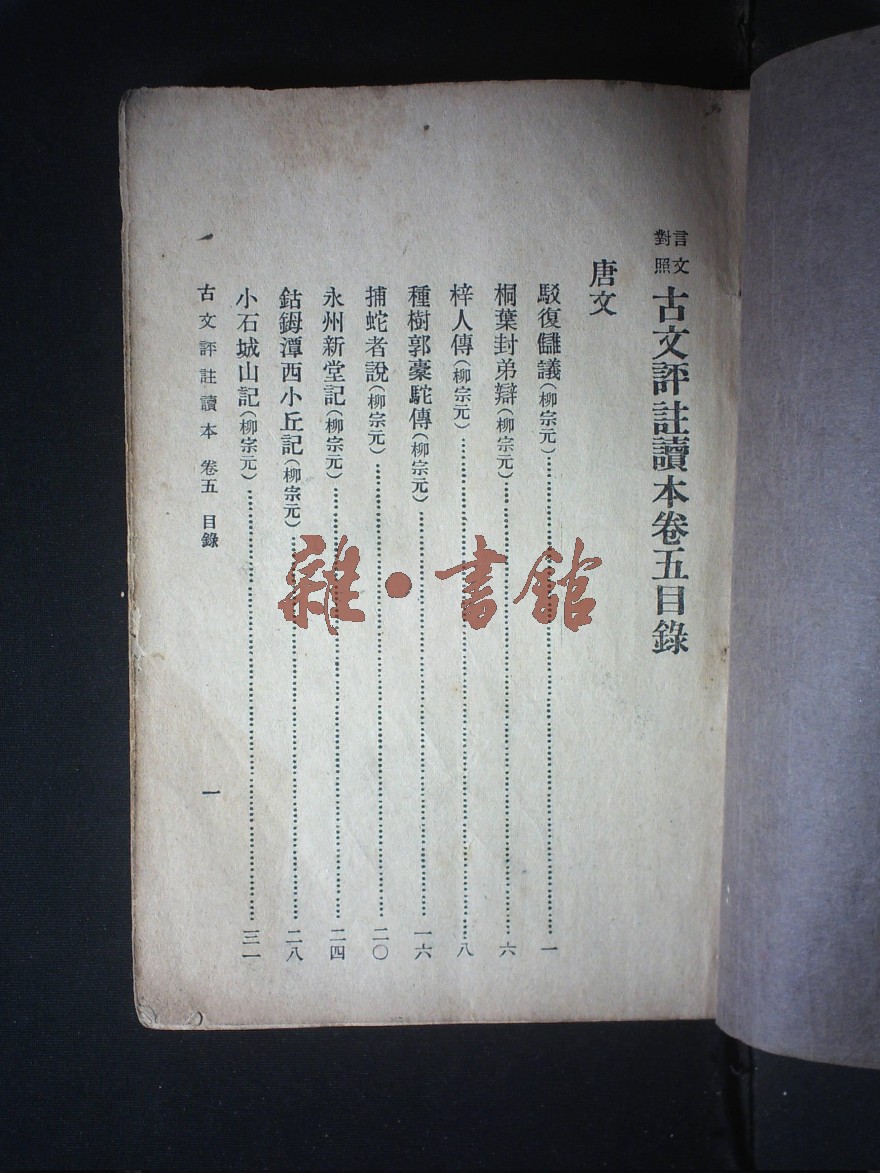 言文對照 古文評註讀本卷五目錄
唐文
駁復讎議(柳宗元)……一
桐葉封弟辯(柳宗元)……六
梓人傳(柳宗元)……八
種樹郭橐駝傳(柳宗元)……一六
捕蛇者說(柳宗元)……二〇
永州新堂記(柳宗元)……二四
鈷鉧潭西小丘記(柳宗元)……二八
小石城山記(柳宗元)……三一
古文評註讀本 卷五 目錄 一
雜·書館